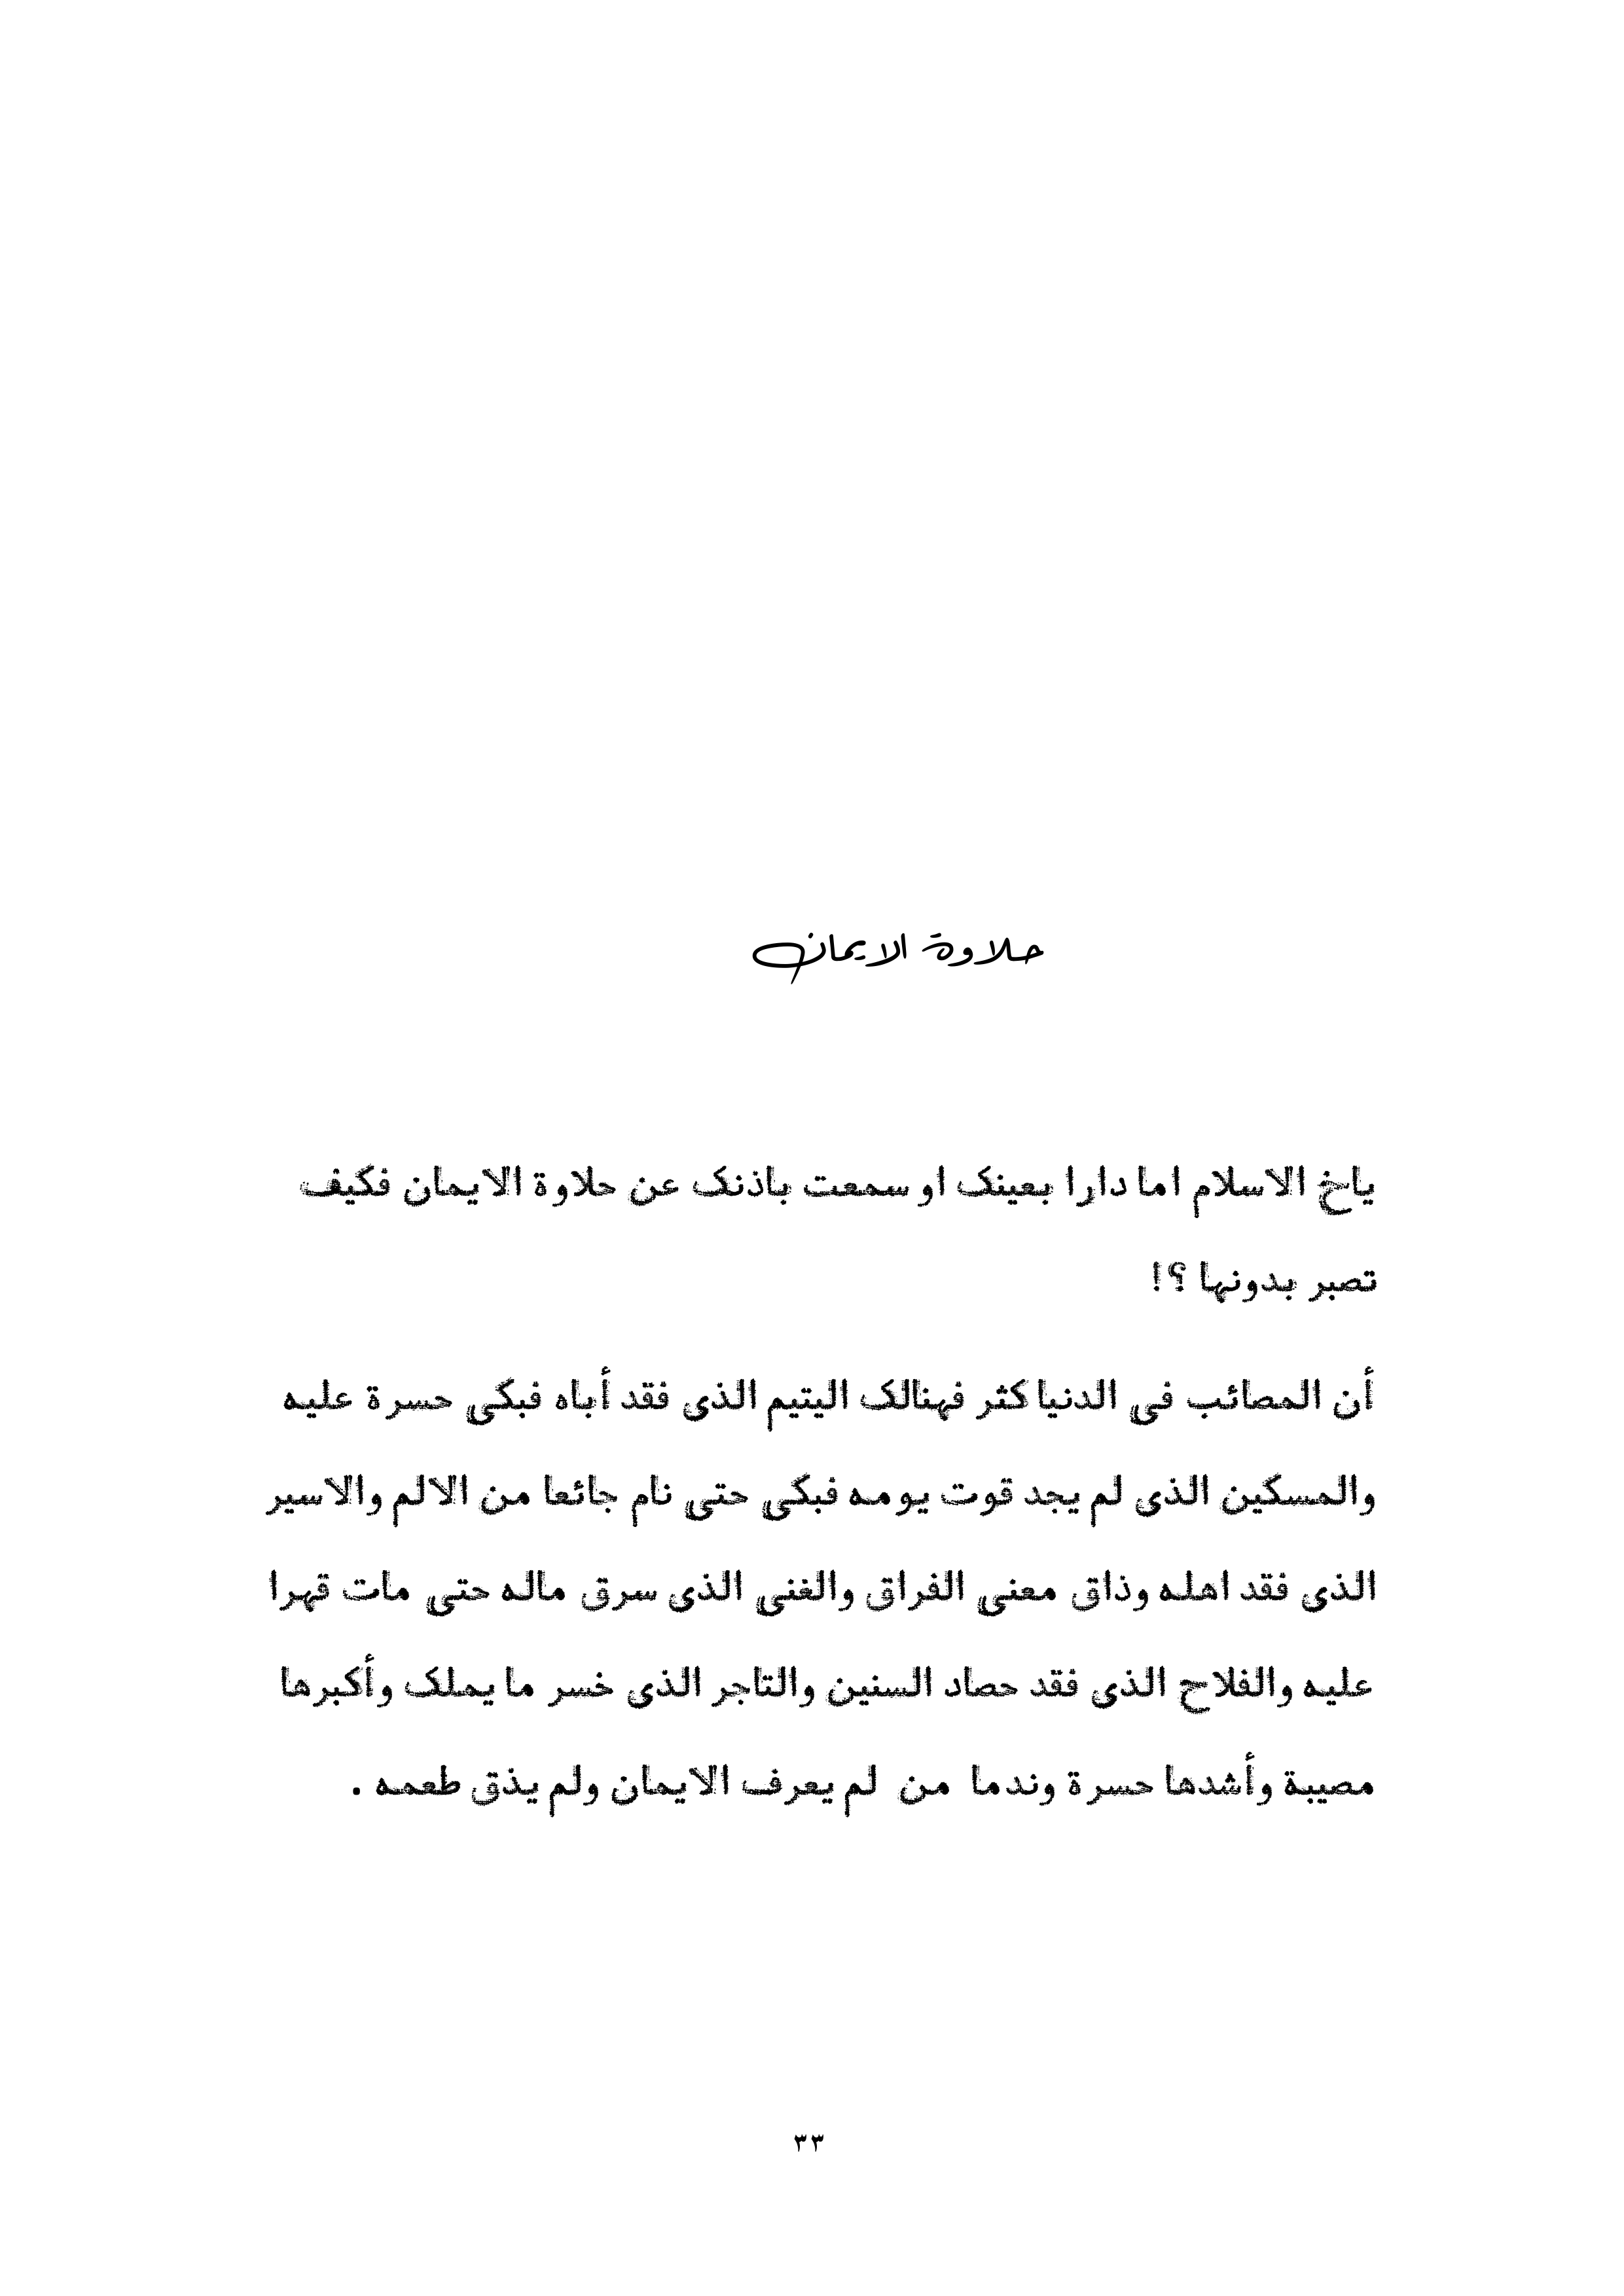 حلاوة الايمان
ياخ الاسلام اما دارا بعينك او سمعت باذنك عن حلاوة الايمان فكيف
تصبر بدونها ؟!
أن المصائب فى الدنيا كثر فهنالك اليتيم الذى فقد أباه فبكى حسرة عليه
والمسكين الذى لم يجد قوت يومه فبكى حتى نام جائعا من الالم والاسير
الذى فقد اهله وذاق معنى الفراق والغنى الذى سرق ماله حتى مات قهرا
عليه والفلاح الذى فقد حصاد السنين والتاجر الذى خسر ما يملك وأكبرها
مصيبة وأشدها حسرة وندما من لم يعرف الايمان ولم يذق طعمه .
٣٣